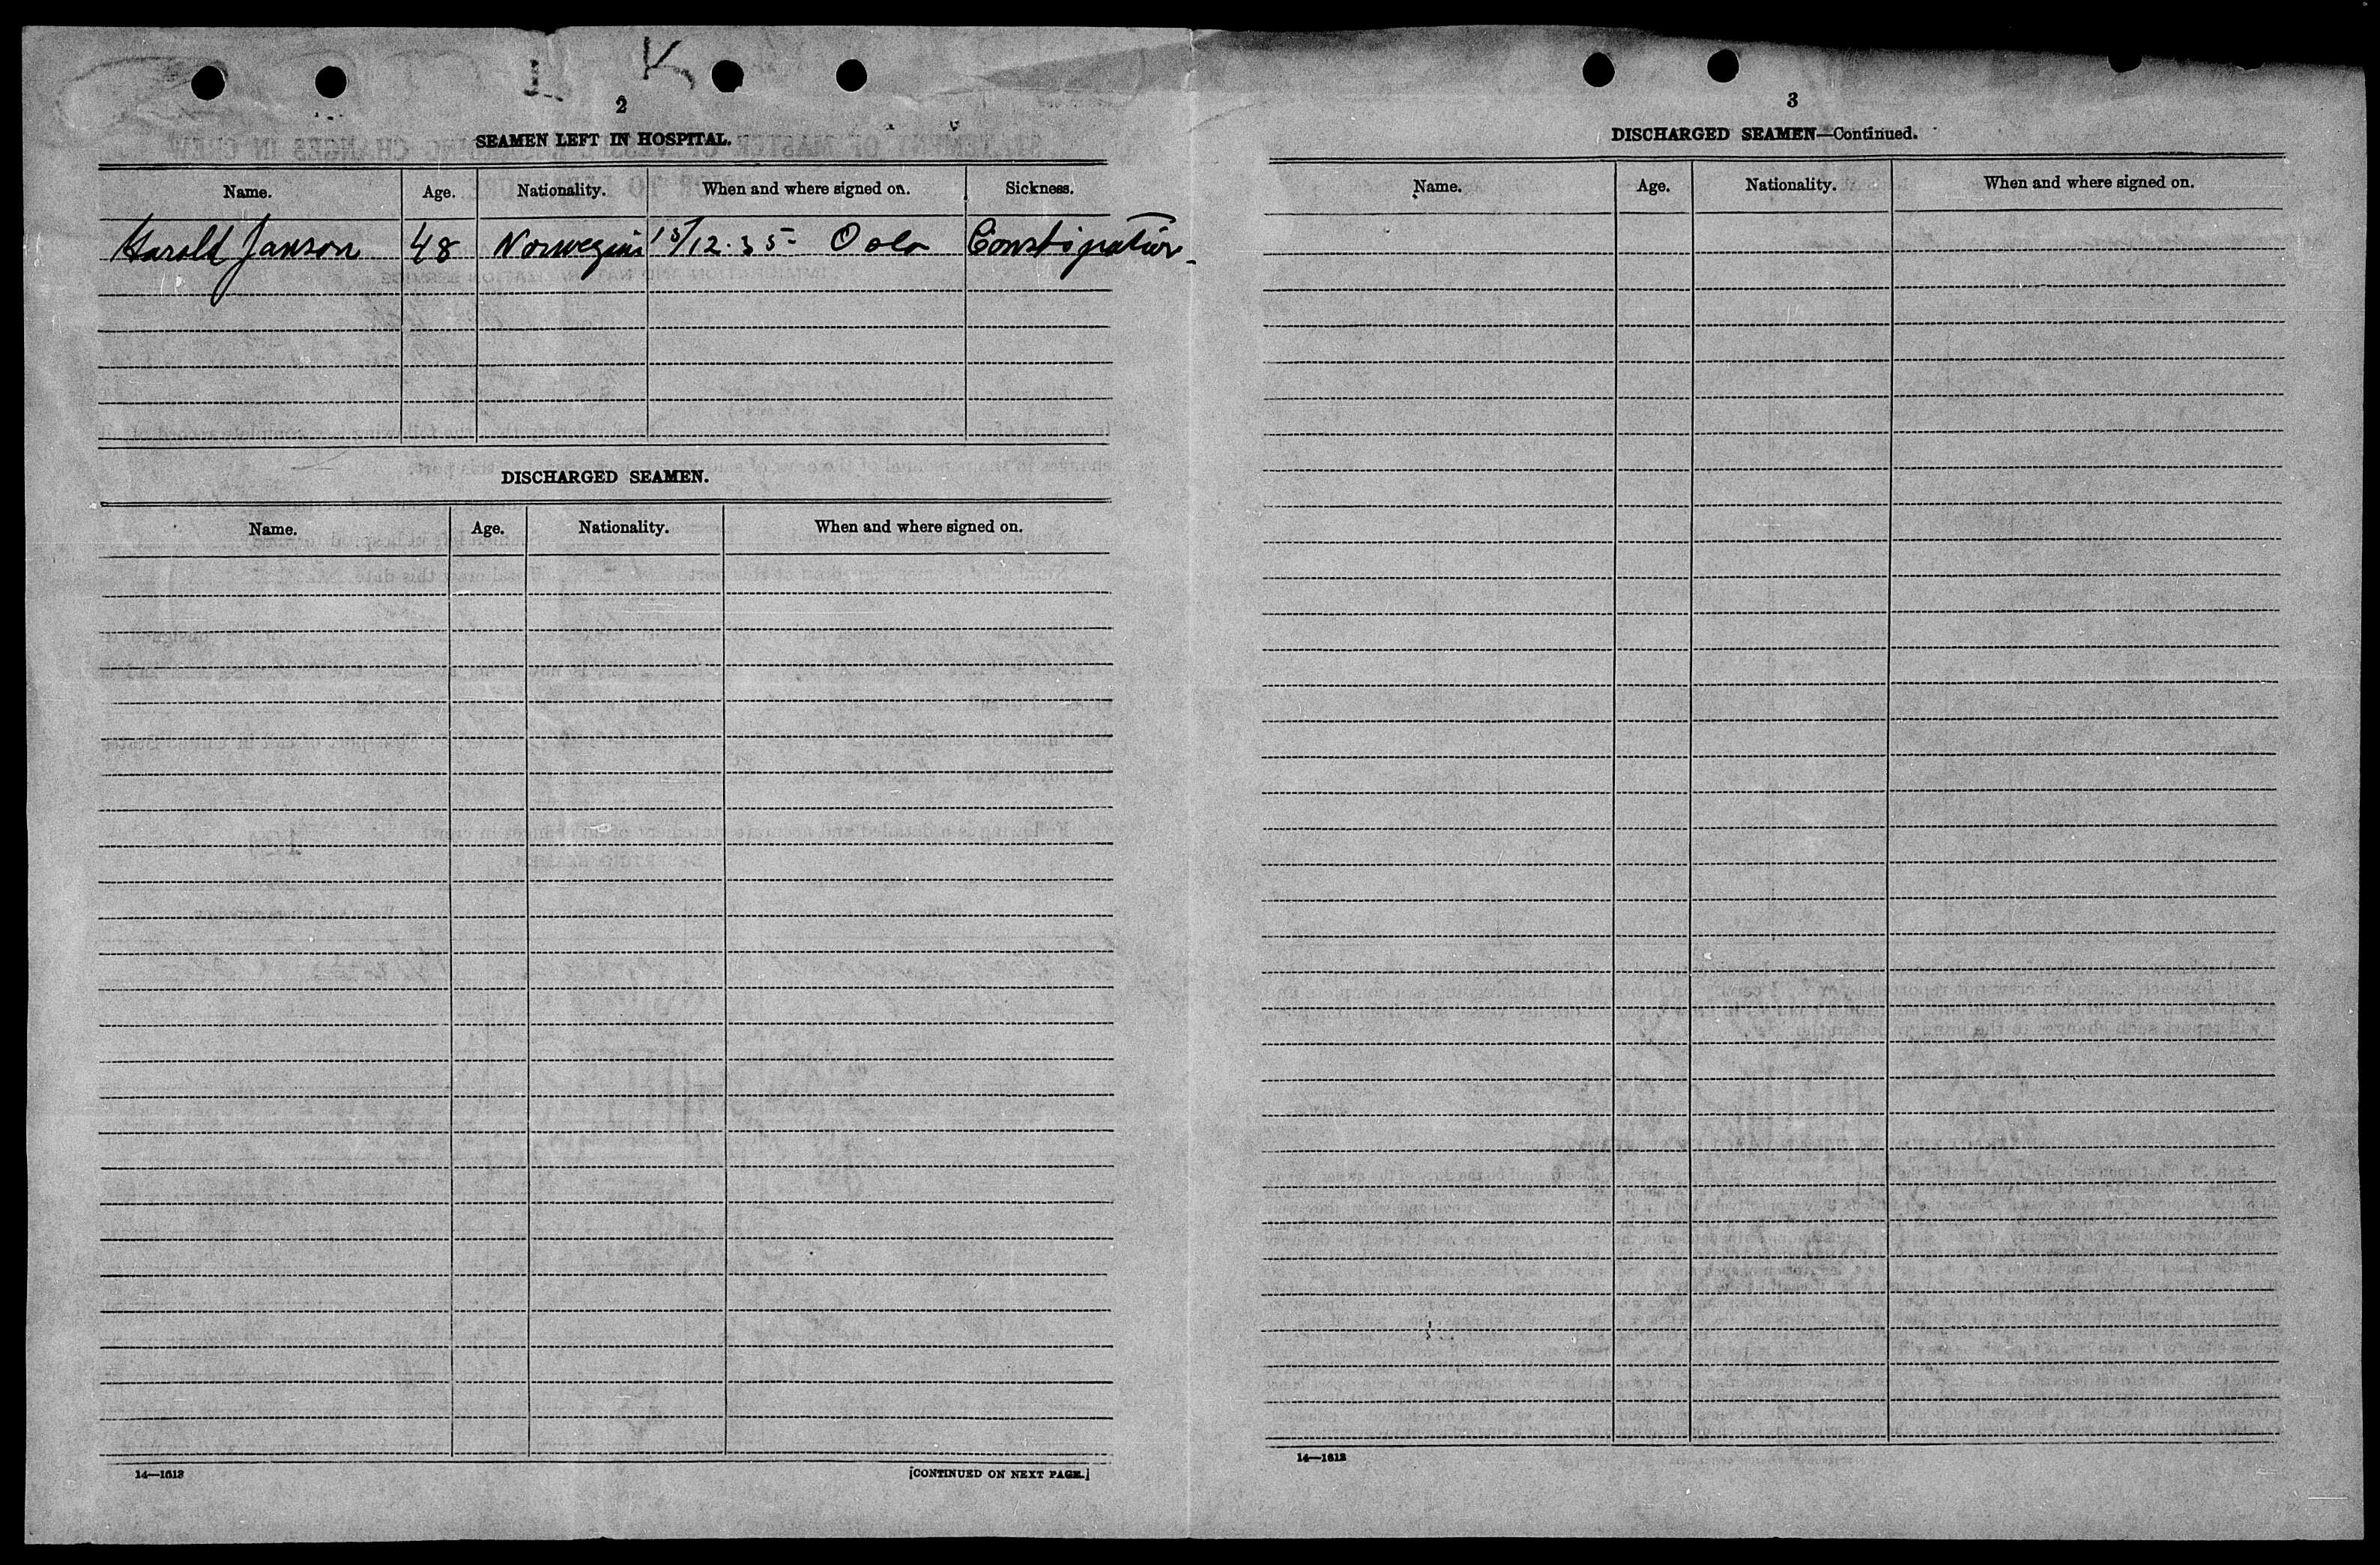 K
2
SEAMEN LEFT IN HOSPITAL.
Name. Age. Nationality. When and where signed on. Sickness.
Harold Janson 48 Norwegian 13/12.35- Oslo Constipation-
DISCHARGED SEAMEN.
Name. Age. Nationality. When and where signed on.
14—1613
[CONTINUED ON NEXT PAGE.]
3
DISCHARGED SEAMEN—Continued.
Name. Age. Nationality. When and where signed on.
14—1613